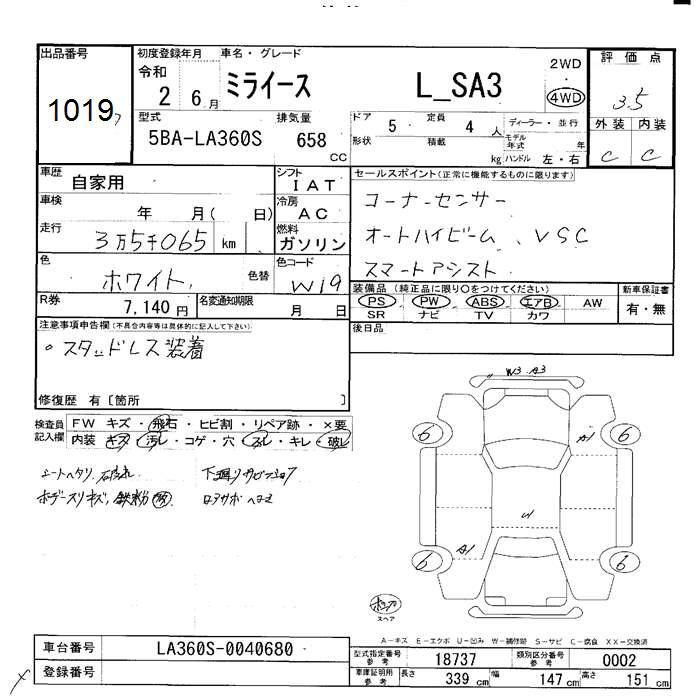 出品番号
1019
初度登録年月
令和
2 6月
車名・グレード
ミライース L_SA3
2WD
4WD
評価点
3.5
外装 内装
C C
型式
5BA-LA360S
排気量
658
CC
ドア 5 定員 4 人
形状 積載 kg
ディーラー・並行
モデル年式 年
ハンドル 左・右
車歴
自家用
シフト
IAT
車検
年 月( 日)
冷房
AC
走行
3万5千065 km
燃料
ガソリン
色
ホワイト 色替
色コード
W19
R券
7,140円
名変通知期限
月 日
セールスポイント(正常に機能するものに限ります)
コーナーセンサー
オートハイビーム、VSC
スマートアシスト
装備品(純正品に限り○をつけてください)
PS PW ABS エアB AW
SR ナビ TV カワ
新車保証書
有・無
後日品
注意事項申告欄(不具合内容等は具体的に記入して下さい)
○スタッドレス装着
修復歴 有[箇所 ]
検査員
記入欄
FW キズ・飛石・ヒビ割・リペア跡・×要
内装 キズ・汚レ・コゲ・穴・スレ・キレ・破レ
シートヘタリ
下廻り
ボデースリキズ、鉄粉
W3 A3
6
6
A1
W
A1
6
6
スペア
A-キズ E-エクボ U-凹み W-補修跡 S-サビ C-腐食 XX-交換済
車台番号
LA360S-0040680
登録番号
型式指定番号
参考
18737
類別区分番号
参考
0002
車庫証明用
参考
長さ 339 cm 幅 147 cm 高さ 151 cm